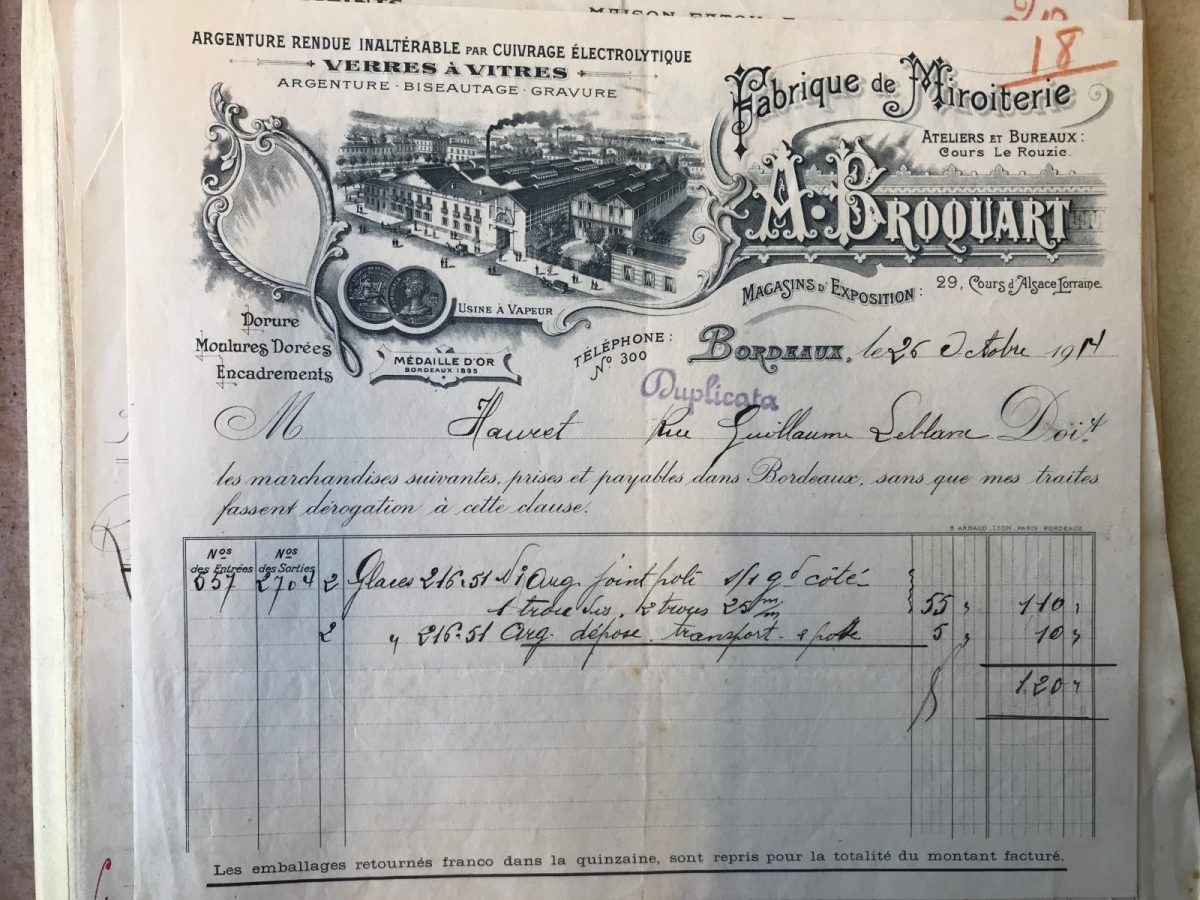 18
ARGENTURE RENDUE INALTÉRABLE PAR CUIVRAGE ÉLECTROLYTIQUE
VERRES À VITRES
ARGENTURE · BISEAUTAGE · GRAVURE
Fabrique de Miroiterie
ATELIERS ET BUREAUX:
Cours Le Rouzic.
A. BROQUART
MAGASINS D'EXPOSITION: 29, Cours d'Alsace Lorraine.
USINE À VAPEUR
Dorure
Moulures Dorées
Encadrements
MÉDAILLE D'OR
BORDEAUX 1895
TÉLÉPHONE:
No 300
BORDEAUX, le 26 Octobre 1914
Duplicata
M Hauret Rue Guillaume Leblanc Doit
les marchandises suivantes, prises et payables dans Bordeaux, sans que mes traites
fassent dérogation à cette clause.
B ARNAUD . LYON . PARIS . BORDEAUX
Nos des Entrées Nos des Sorties
557 2704 2 Glaces 216.51 Arg. joint poli s/1 gd côté
1 trous 25 m/m 55 " 110 "
2 " 216.51 Arg. dépose transport & pose 5 " 10 "
120 "
Les emballages retournés franco dans la quinzaine, sont repris pour la totalité du montant facturé.